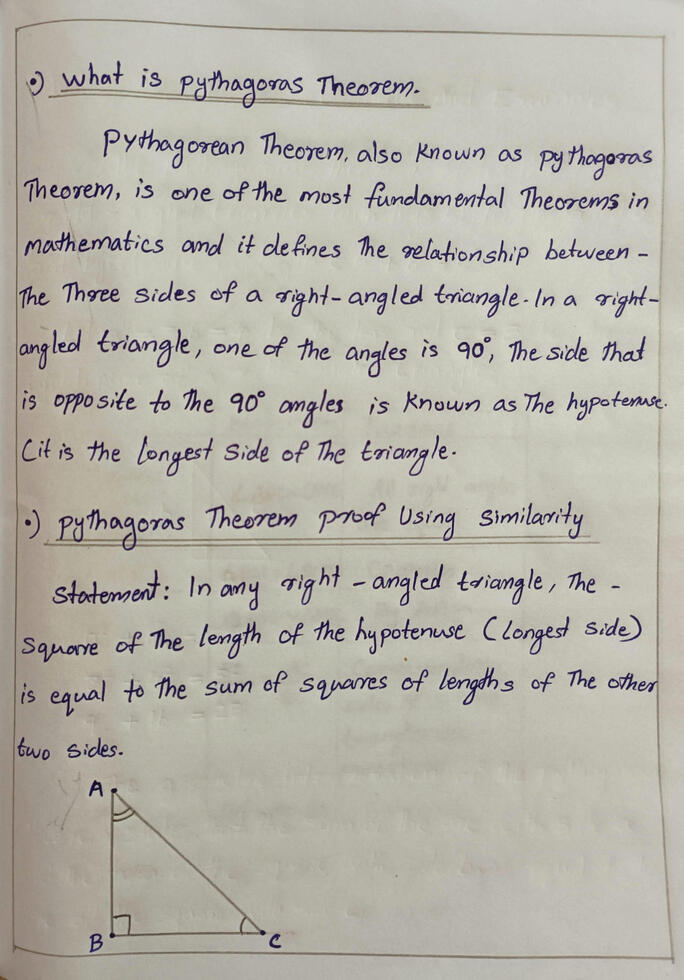 •) What is Pythagoras Theorem.
Pythagorean Theorem, also Known as pythagoras
Theorem, is one of the most fundamental Theorems in
mathematics and it defines The relationship between -
The Three sides of a right-angled triangle. In a right-
angled triangle, one of the angles is 90°, The side that
is opposite to The 90° angles is Known as The hypotenuse.
(it is the longest side of The triangle.
•) Pythagoras Theorem proof Using Similarity
Statement: In any right-angled triangle, The -
Square of The length of the hypotenuse (longest side)
is equal to the sum of squares of lengths of The other
two sides.
A
B
C